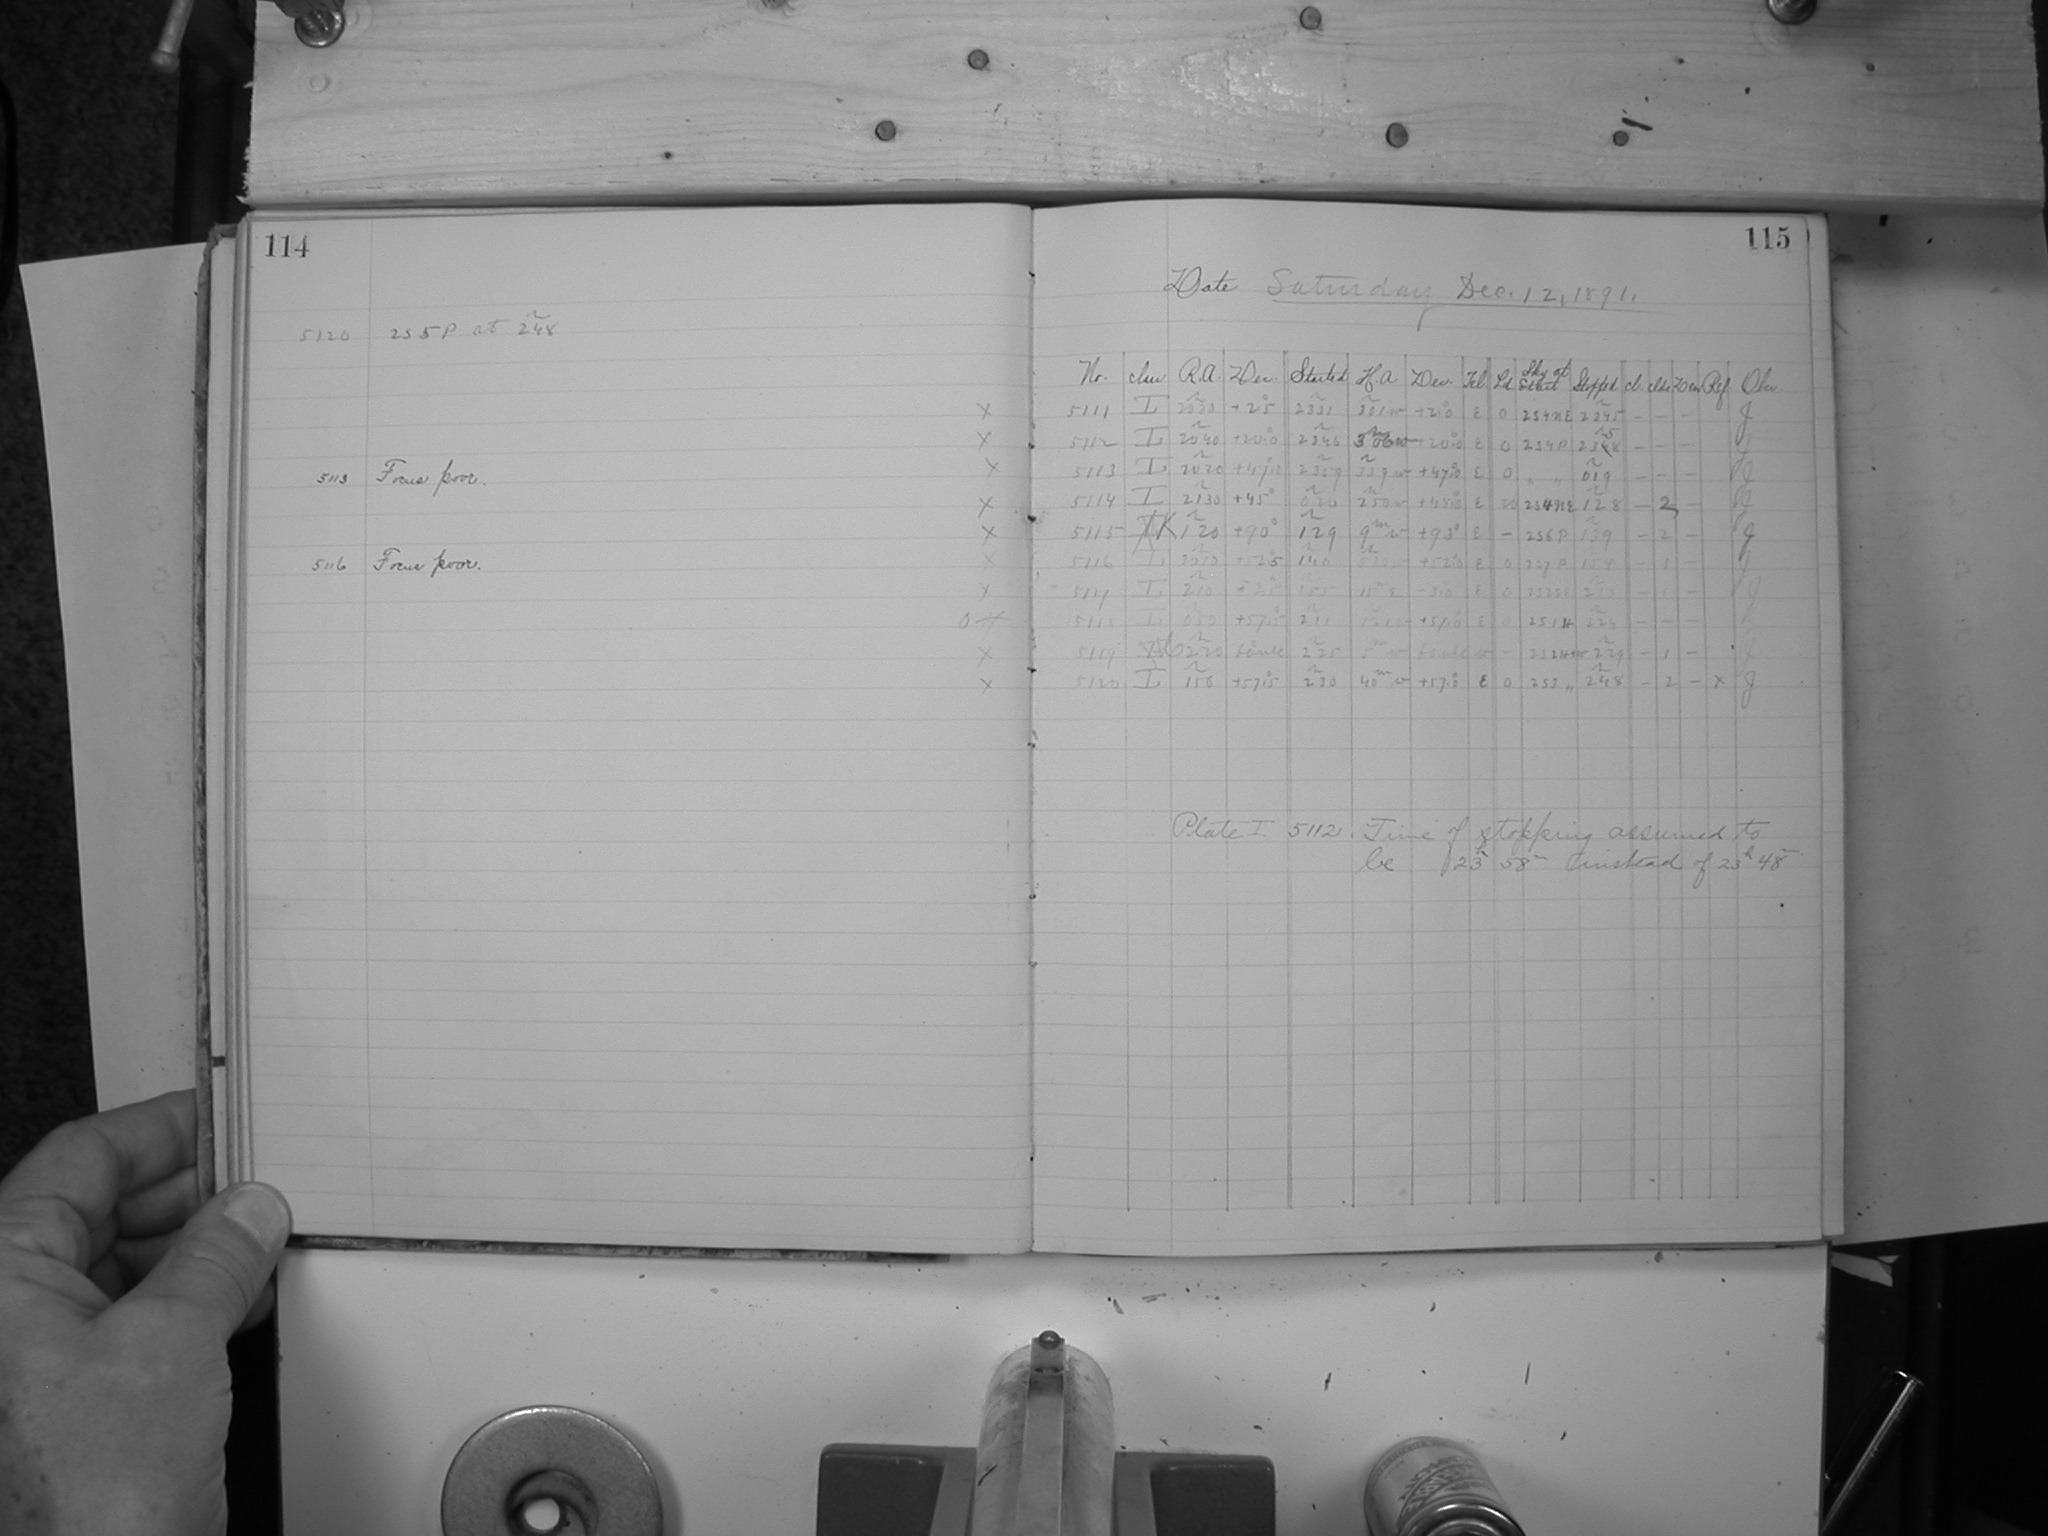 114
5120 2S 5P at 2h48
5113 Focus poor.
5116 Focus poor.
115
Date Saturday Dec. 12, 1891.
No. class R.A. Dec. Started H.A. Dec. Tel. Ld Sky at Start Stopped cl. clds Dew Ref. Obs.
X 5111 I 2330 +2.5 2331 301w +2.0 E 0 2S4NE 2345 - - - J
X 5112 I 2040 +20.0 2346 306w +20.0 E 0 2S4P 2348 5 - - - J
X 5113 I 2020 +47.0 2359 339w +47.0 E 0 " " 019 - - - J
X 5114 I 2130 +45° 020 250w +48.0 E 20 2S4NE 128 - 2 - J
X 5115 K 120 +90° 129 9m w +93° E - 2S6P 139 - 2 - J
X 5116 I +52.5 140 +52.0 E 0 2S7P 154 - 1 - J
X 5117 I 210 155 15m E -3.0 E 0 210 - 1 - J
0 I 050 +57.5 211 +57.0 E 0 2S1N 224 - - -
X 5119 220 225 5m w w - 229 - 1 -
X 5120 I 150 +57.5 230 40m w +57.0 E 0 2S3 " 248 - 2 - X J
Plate I 5112. Time of stopping assumed to
be 23h 58m instead of 23h 48m